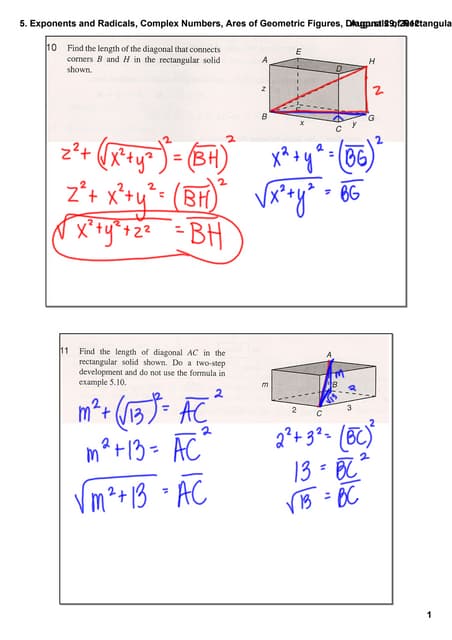 5. Exponents and Radicals, Complex Numbers, Ares of Geometric Figures, Diagonals of Rectangula
August 29, 2012
10 Find the length of the diagonal that connects
corners B and H in the rectangular solid
shown.
E
A
D
H
z
z
B
F
G
x
y
C
z² + (√x²+y²)² = (BH)²
z² + x²+y² = (BH)²
√x²+y²+z² = BH
x² + y² = (BG)²
√x²+y² = BG
11 Find the length of diagonal AC in the
rectangular solid shown. Do a two-step
development and do not use the formula in
example 5.10.
A
m
m
B
√13
2
2
C
3
m² + (√13)² = AC²
m² + 13 = AC²
√m² + 13 = AC
2² + 3² = (BC)²
13 = BC²
√13 = BC
1